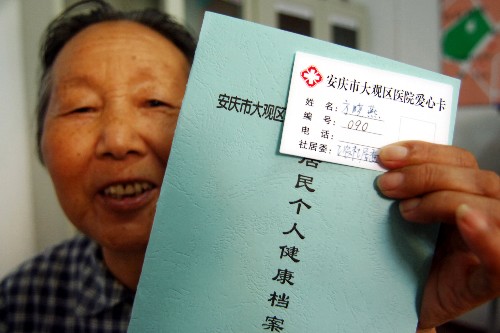 安庆市大观区医院爱心卡
姓名:
编号: 090
电话:
社居委:
安庆市大观区
居民个人健康档案